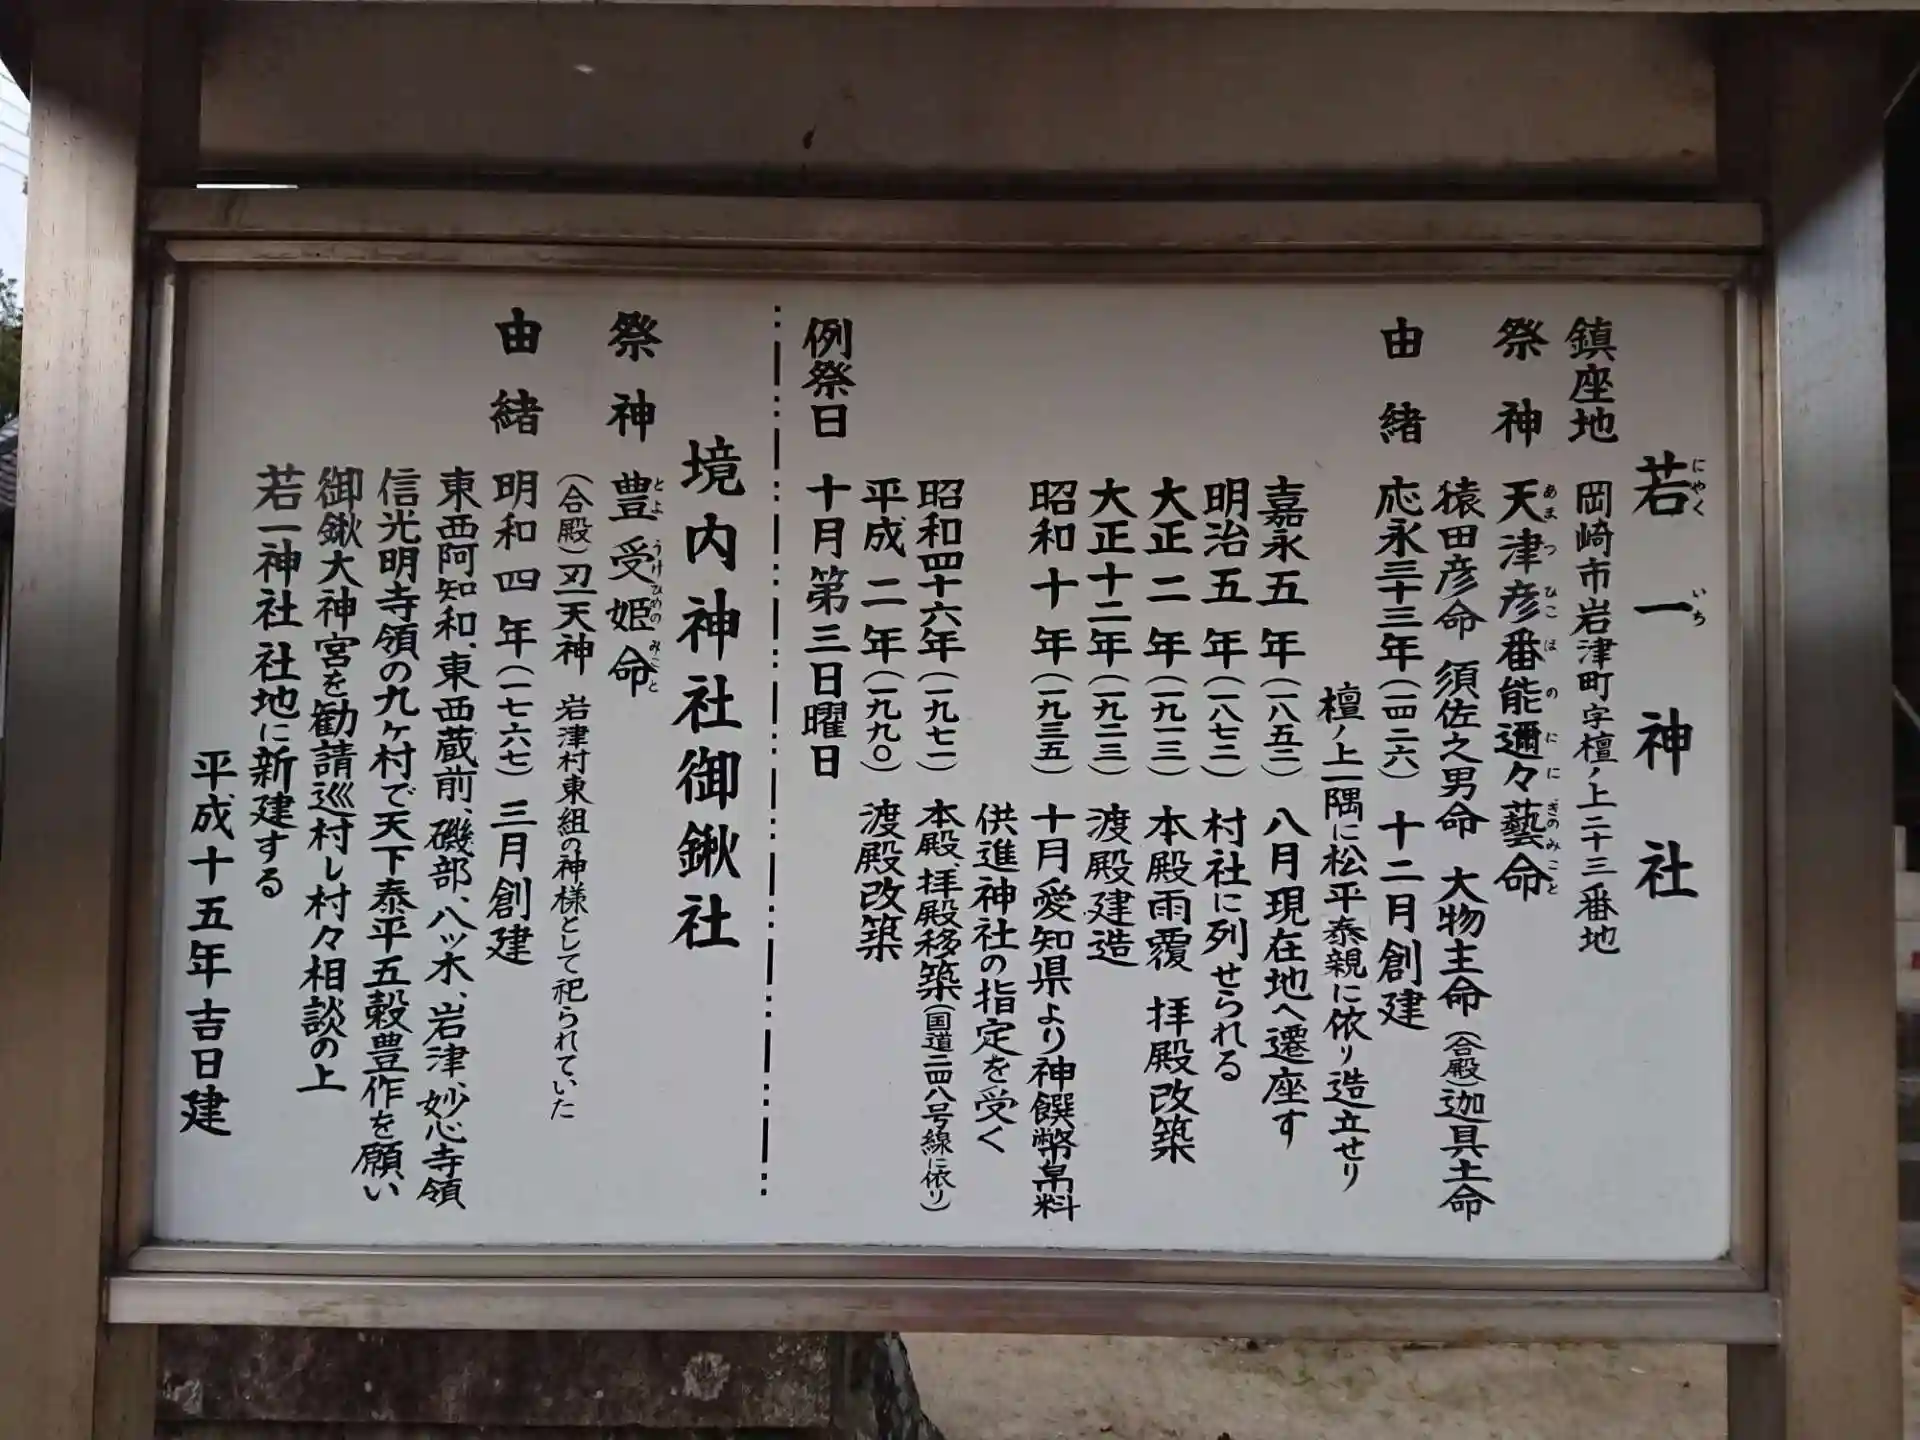 若一神社
にやく いち
鎮座地 岡崎市岩津町字檀ノ上二十三番地
祭神 天津彦番能邇々藝命
あまつひこほのににぎのみこと
猿田彦命 須佐之男命 大物主命(合殿)迦具土命
由緒 応永三十三年(一四二六) 十二月創建
檀ノ上一隅に松平泰親に依り造立せり
嘉永五年(一八五二) 八月現在地へ遷座す
明治五年(一八七二) 村社に列せられる
大正二年(一九一三) 本殿雨覆 拝殿改築
大正十二年(一九二三) 渡殿建造
昭和十年(一九三五) 十月愛知県より神饌幣帛料
供進神社の指定を受く
昭和四十六年(一九七一) 本殿、拝殿移築(国道二四八号線に依り)
平成二年(一九九〇) 渡殿改築
例祭日 十月第三日曜日
境内神社御鍬社
祭神 豊受姫命
とようけひめのみこと
(合殿)刃天神 岩津村東組の神様として祀られていた
由緒 明和四年(一七六七) 三月創建
東西阿知和、東西蔵前、磯部、八ッ木、岩津、妙心寺領
信光明寺領の九ヶ村で天下泰平五穀豊作を願い
御鍬大神宮を勧請巡村し村々相談の上
若一神社社地に新建する
平成十五年吉日建